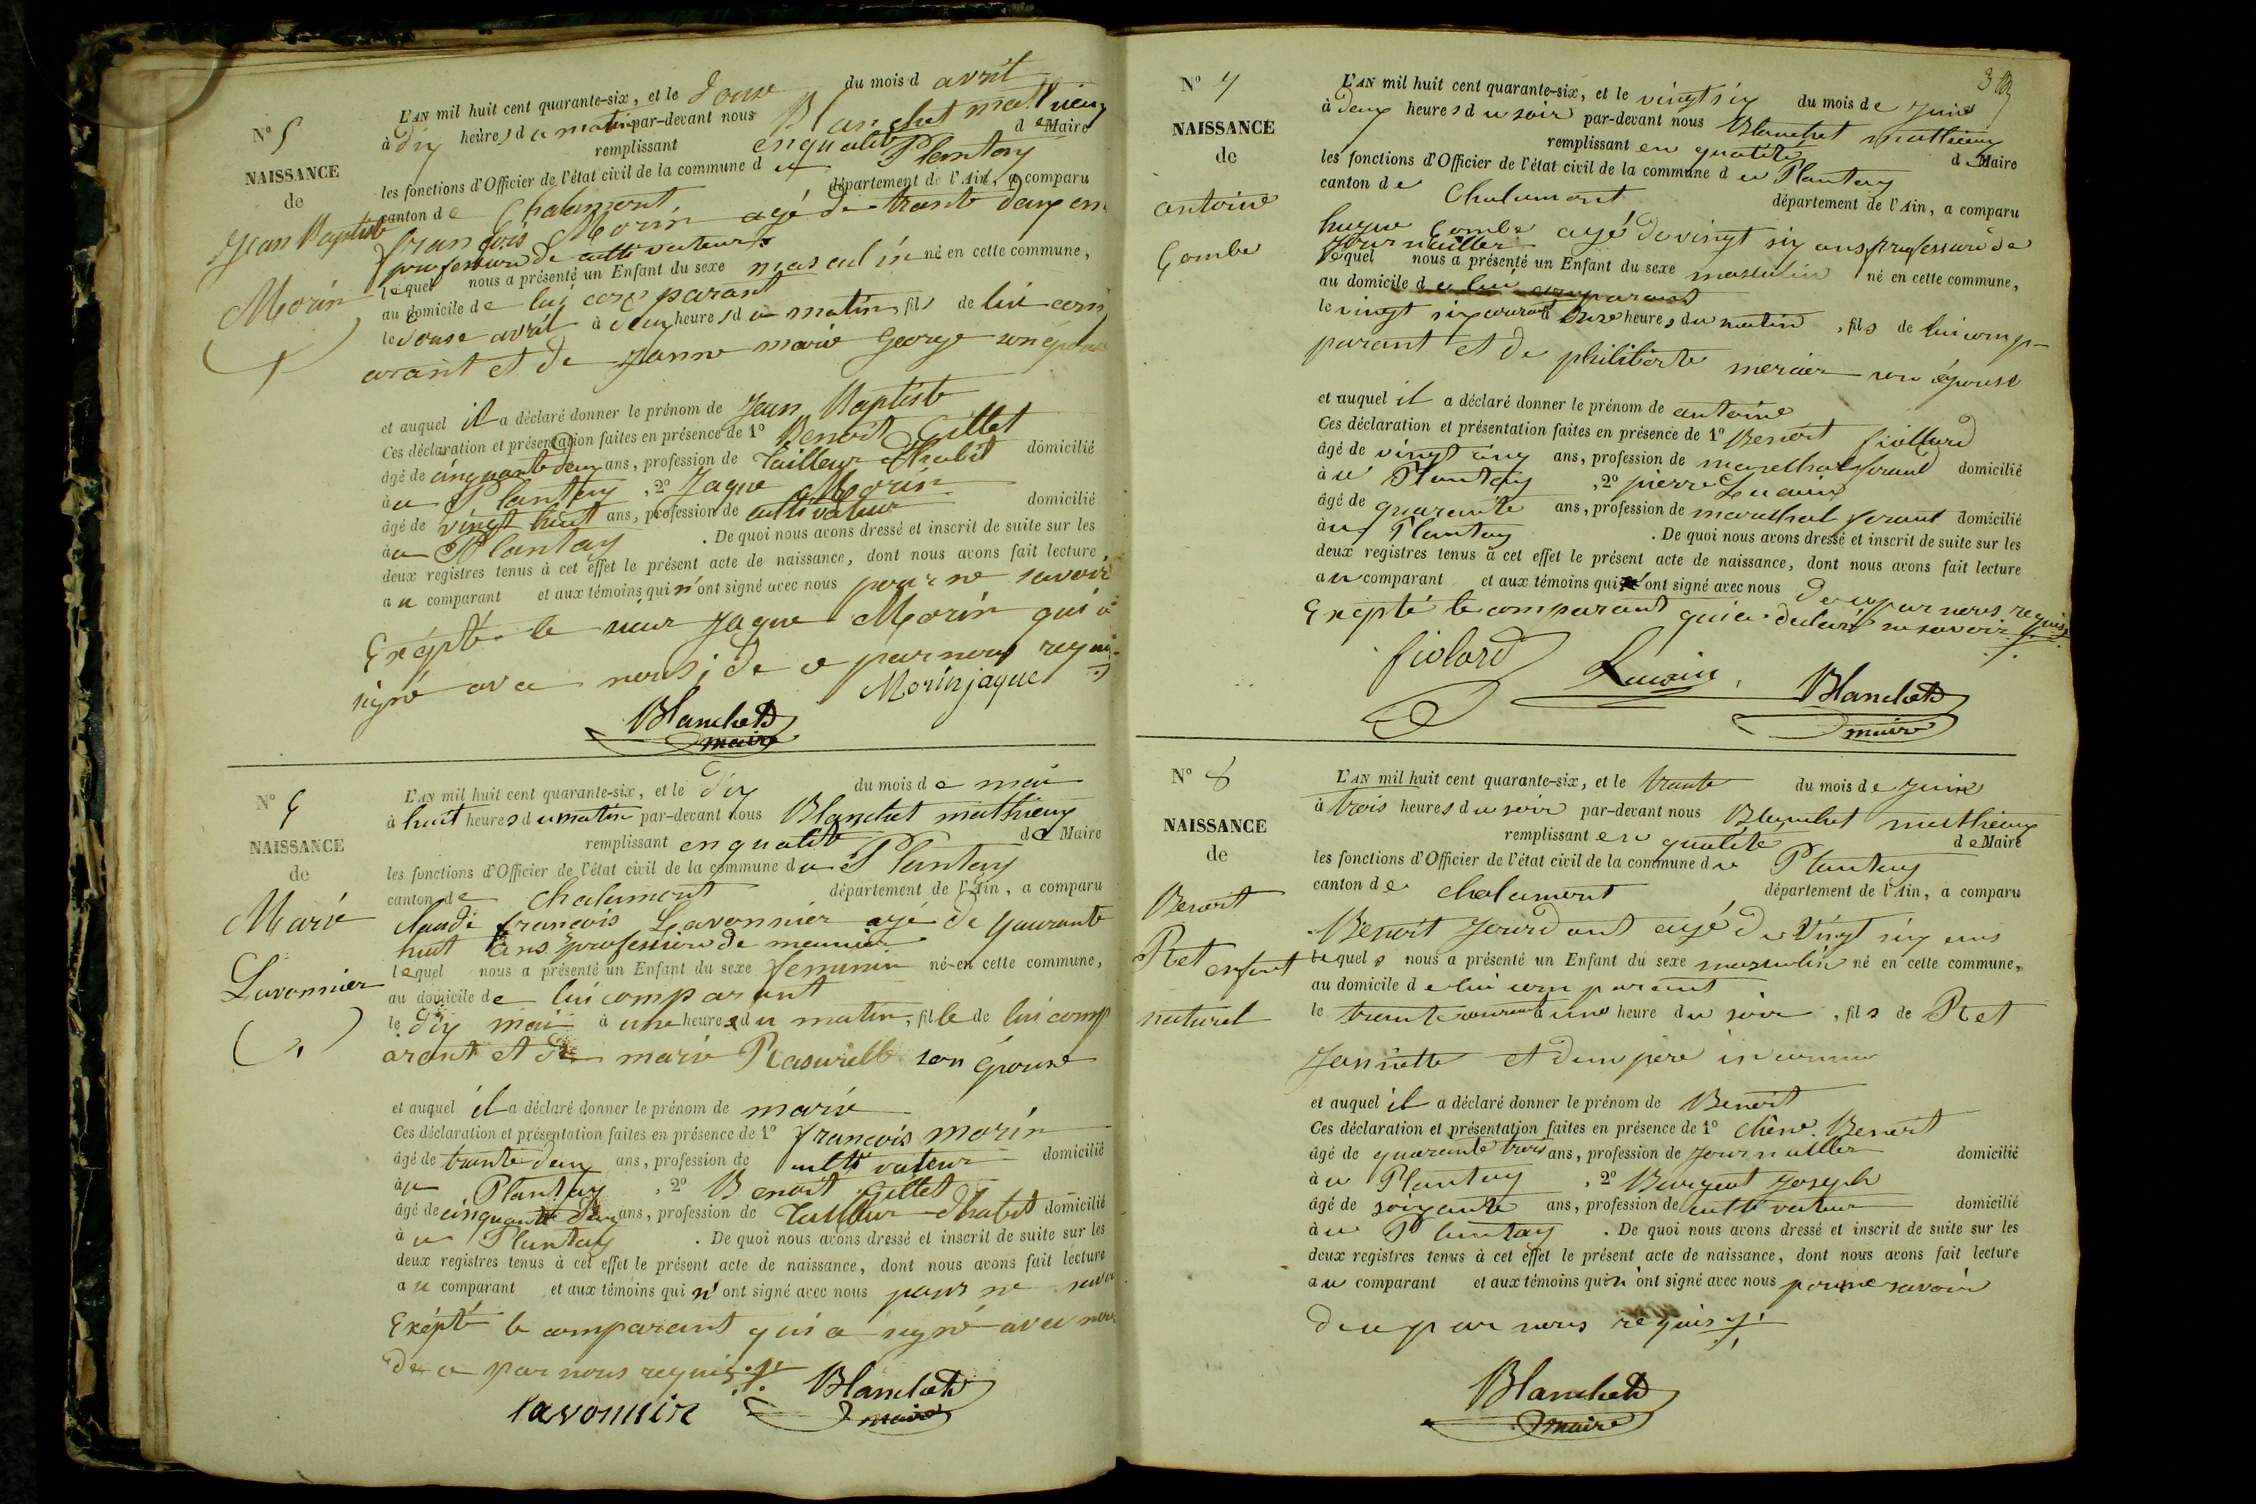 N° 5
NAISSANCE
de
Jean Baptiste
Morin
L'AN mil huit cent quarante-six, et le douse du mois d avril
à dix heures du matin par-devant nous Blanchet mathieux
remplissant en qualité de Maire
les fonctions d'Officier de l'état civil de la commune du Plantay
canton de Chalamont département de l'Ain, a comparu
françois Morin agé de trante deux ans
profession de cultivateur
lequel nous a présenté un Enfant du sexe masculin né en cette commune,
au domicile de lui comparant
le douse avril à deux heures du matin, fils de lui com
arant et de janne marie George son épouse
et auquel il a déclaré donner le prénom de Jean Baptiste
Ces déclaration et présentation faites en présence de 1° Benoit Gillet
âgé de cinquante deux ans, profession de Tailleur d'habit domicilié
au Plantay, 2° Jaque Morin
âgé de vingt huit ans, profession de cultivateur domicilié
au Plantay. De quoi nous avons dressé et inscrit de suite sur les
deux registres tenus à cet effet le présent acte de naissance, dont nous avons fait lecture
au comparant et aux témoins qui n'ont signé avec nous pour ne savoir
Exépté le sieur Jaque Morin qui a
signé avec nous, de ce par nous requis
Morin jaque
Blanchet
maire
N° 6
NAISSANCE
de
Marie
Lavonnier
L'AN mil huit cent quarante-six, et le dix du mois de mai
à huit heures du matin par-devant nous Blanchet mathieux
remplissant en qualité de Maire
les fonctions d'Officier de l'état civil de la commune du Plantay
canton de Chalamont département de l'Ain, a comparu
Claude françois Lavonnier agé de quarante
huit ans profession de meunier
lequel nous a présenté un Enfant du sexe feminin né en cette commune,
au domicile de lui comparant
le dix mai à une heure du matin, fille de lui comp
arant et de marie son épouse
et auquel il a déclaré donner le prénom de marie
Ces déclaration et présentation faites en présence de 1° françois morin
âgé de trante deux ans, profession de cultivateur domicilié
au Plantay, 2° Benoit Gillet
âgé de cinquante deux ans, profession de Tailleur d'habit domicilié
au Plantay. De quoi nous avons dressé et inscrit de suite sur les
deux registres tenus à cet effet le présent acte de naissance, dont nous avons fait lecture
au comparant et aux témoins qui n'ont signé avec nous pour ne savoir
Exépté le comparant qui a signé avec nous
de ce par nous requis
lavonnier
Blanchet
maire
3
N° 7
NAISSANCE
de
antoine
Gombe
L'AN mil huit cent quarante-six, et le vingt six du mois de Juin
à deux heures du soir par-devant nous Blanchet mathieux
remplissant en qualité de Maire
les fonctions d'Officier de l'état civil de la commune du Plantay
canton de Chalamont département de l'Ain, a comparu
hugue Gombe agé de vingt six ans profession de
Journallier
lequel nous a présenté un Enfant du sexe masculin né en cette commune,
au domicile de lui comparant
le vingt six courant à onze heures du matin, fils de lui comp
parant et de philiberte mercier son épouse
et auquel il a déclaré donner le prénom de antoine
Ces déclaration et présentation faites en présence de 1° Benoit fiollard
âgé de vingt cinq ans, profession de marechal ferant domicilié
au Plantay, 2° pierre
âgé de quarante ans, profession de marechal ferant domicilié
au Plantay. De quoi nous avons dressé et inscrit de suite sur les
deux registres tenus à cet effet le présent acte de naissance, dont nous avons fait lecture
au comparant et aux témoins qui ont signé avec nous de ce par nous requis
Exepté le comparant qui a déclaré ne savoir
fiolard
Blanchet
maire
N° 8
NAISSANCE
de
Benoit
Ret enfant
naturel
L'AN mil huit cent quarante-six, et le trante du mois de Juin
à trois heures du soir par-devant nous Blanchet mathieux
remplissant en qualité de Maire
les fonctions d'Officier de l'état civil de la commune du Plantay
canton de chalamont département de l'Ain, a comparu
Benoit Jourdant agé de Vingt six ans
lequel nous a présenté un Enfant du sexe masculin né en cette commune,
au domicile de lui comparant
le trante courant à une heure du soir, fils de Ret
Jannette et d'un père inconnu
et auquel il a déclaré donner le prénom de Benoit
Ces déclaration et présentation faites en présence de 1° chêne Benoit
âgé de quarante trois ans, profession de Journallier domicilié
au Plantay, 2° Joseph
âgé de soixante ans, profession de cultivateur domicilié
au Plantay. De quoi nous avons dressé et inscrit de suite sur les
deux registres tenus à cet effet le présent acte de naissance, dont nous avons fait lecture
au comparant et aux témoins qui n'ont signé avec nous pour ne savoir
de ce par nous requis
Blanchet
maire